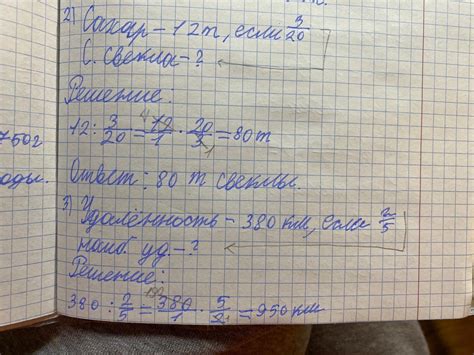 2) Сахар – 12т, если 3/20
С. свекла – ?
Решение:
12 : 3/20 = 12/1 · 20/3 = 80 т
750г
Ответ: 80 т свеклы.
оды.
3) Удалённость – 380 км, если 2/5
наиб уд. – ?
Решение:
380 : 2/5 = 380/1 · 5/2 = 950 км